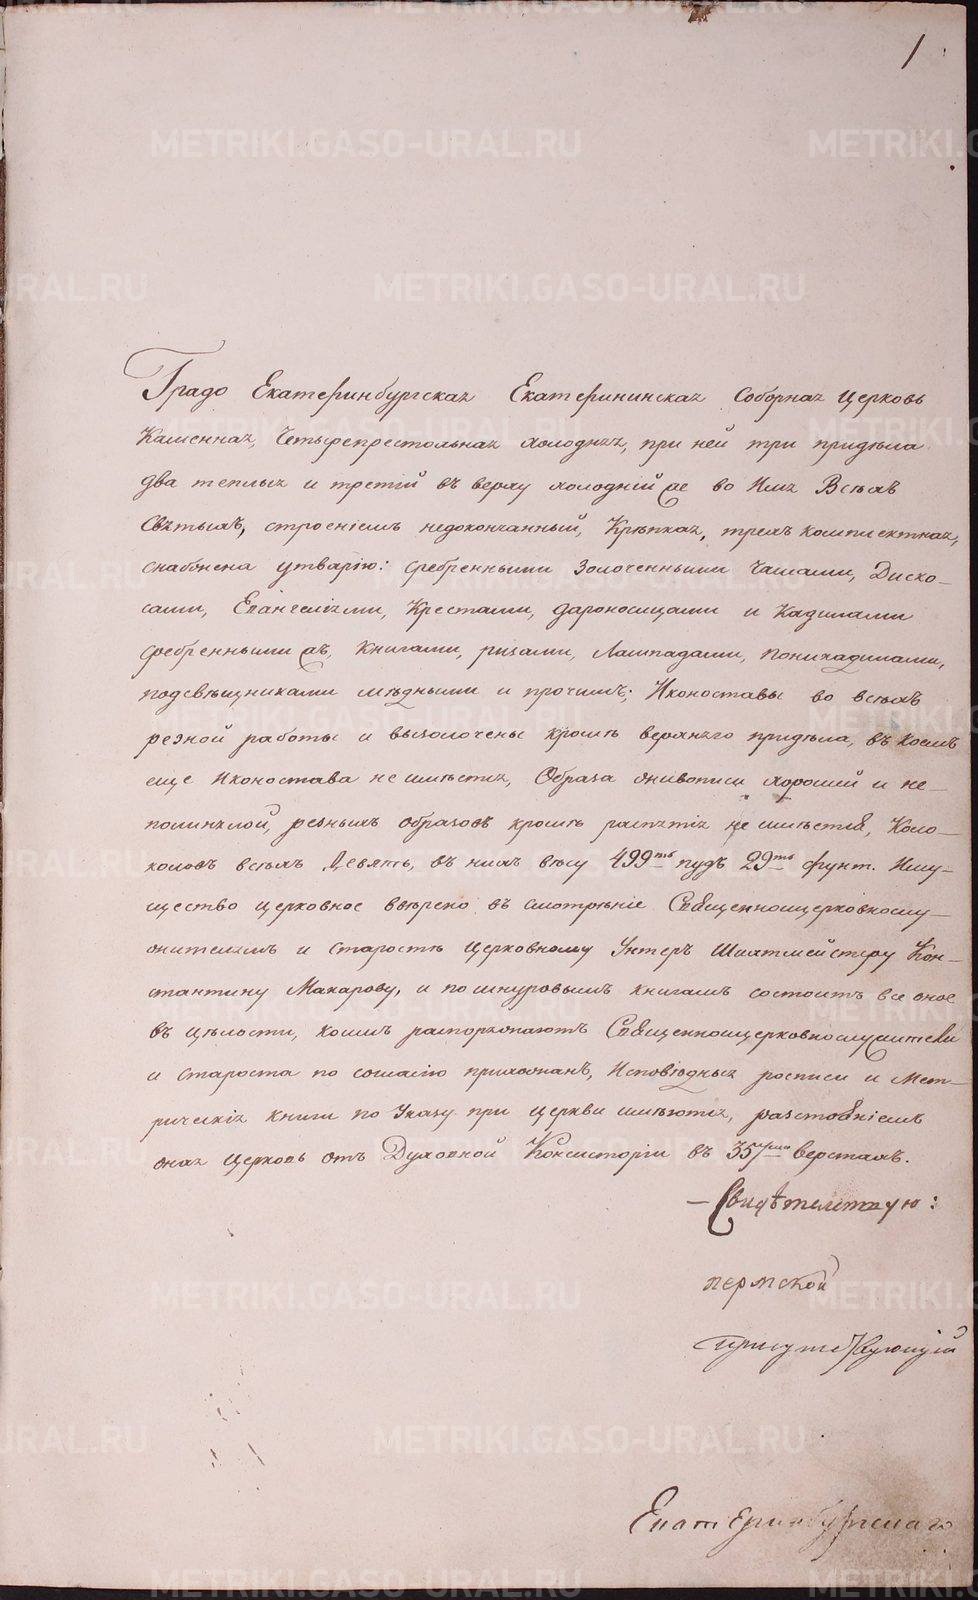 1
Градо Екатеринбургская Екатерининская Соборная Церковь
Каменная, Четырепрестольная холодная, при ней три придѣла
два теплыя и третій въ верху холодній же во Имя Всѣхъ
Святыхъ, строеніемъ недоконченный, Крѣпкая, трехъ комплектная,
снабжена утварію: сребренными золоченными чашами, Диско-
сами, Евангеліями, Крестами, дароносицами и Кадилами
сребренными жъ, книгами, ризами, Лампадами, Поникадилами,
подсвѣщниками мѣдными и прочимъ; Иконоставы во всѣхъ
резной работы и вызолочены кромѣ верхняго придѣла, въ коемъ
еще Иконостава не имѣется, Образа живописи хорошей и не-
полинялой, резныхъ образовъ кромѣ распятія не имѣется, Коло-
коловъ всѣхъ Девять, въ нихъ вѣсу 499ть пудъ 29ть фунт. Иму-
щество церковное ввѣрено въ смотрѣніе Священноцерковнослу-
жителямъ и старостѣ Церковному Унтеръ Шихтмейстеру Кон-
стантину Макарову, и по шнуровымъ книгамъ состоитъ все оное
въ цѣлости, коимъ распоряжаютъ Священноцерковнослужители
и староста по согласію прихожанъ, Исповѣдныя росписи и Мет-
рическія книги по Указу при церкви имѣются, разстояніемъ
оная церковь отъ Духовной Консисторіи въ 35 верстахъ.
— Свидѣтельствую:
пермской
присутствующій
Екатеринбургскаго
METRIKI.GASO-URAL.RU